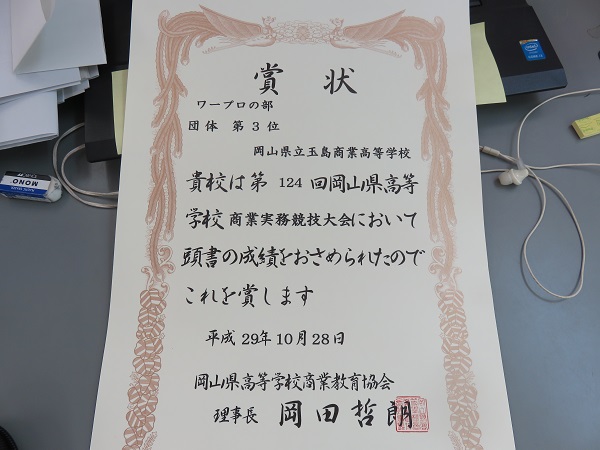 賞状
ワープロの部
団体 第3位
岡山県立玉島商業高等学校
貴校は第124回岡山県高等
学校商業実務競技大会において
頭書の成績をおさめられたので
これを賞します
平成29年10月28日
岡山県高等学校商業教育協会
理事長 岡田哲朗
MONO
intel